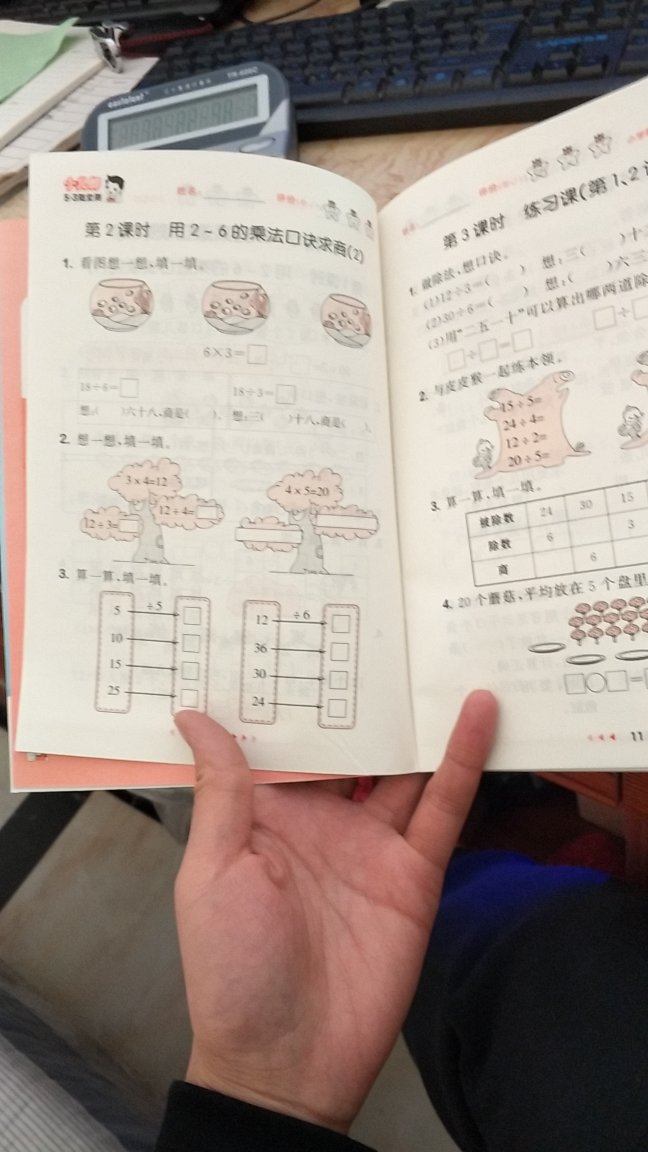 TR-620C
5·3随堂测
姓名:
第2课时 用2~6的乘法口诀求商(2)
1. 看图想一想,填一填。
6×3=□
18÷6=□
18÷3=□
想:( )六十八,商是( )。
想:三( )十八,商是( )。
2. 想一想,填一填。
3×4=12
12÷4=□
12÷3=□
4×5=20
3. 算一算,填一填。
÷5
5
10
15
25
÷6
12
36
30
24
第3课时 练习课(第1、2
1. 做除法,想口诀。
(1)12÷3=( ) 想:三( )十
(2)30÷6=( ) 想:( )六三
(3)用“二五一十”可以算出哪两道除
□÷□=□ □÷
2. 与皮皮猴一起练本领。
15÷5=
24÷4=
12÷2=
20÷5=
3. 算一算,填一填。
被除数 24 30 15
除数 6 3
商 6
4. 20个蘑菇,平均放在5个盘里
□○□=
11